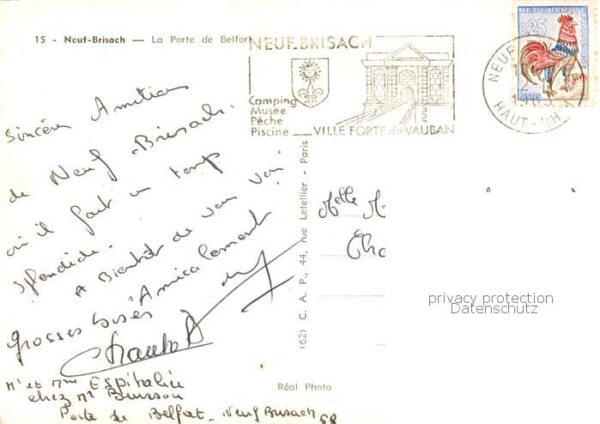 15 - Neuf-Brisach — La Porte de Belfort
NEUF-BRISACH
Camping
Musée
Pêche
Piscine
VILLE FORTE de VAUBAN
0,25
REPUBLIQUE
NEUF
HAUT-RH
Sincères Amitiés
de Neuf Brisach
où il fait un temps
splendide.
A Bientôt de vous voir
Amicalement
grosses bises
Mr et Mme Espitalié
chez Mr Buisson
Porte de Belfort - Neuf Brisach 68
(62) C. A. P., 44, rue Letellier - Paris
Réal Photo
Melle M
Cha
privacy protection
Datenschutz